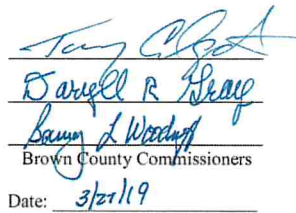 Daryll R Gray
L Woodruff
Brown County Commissioners
Date: 3/27/19